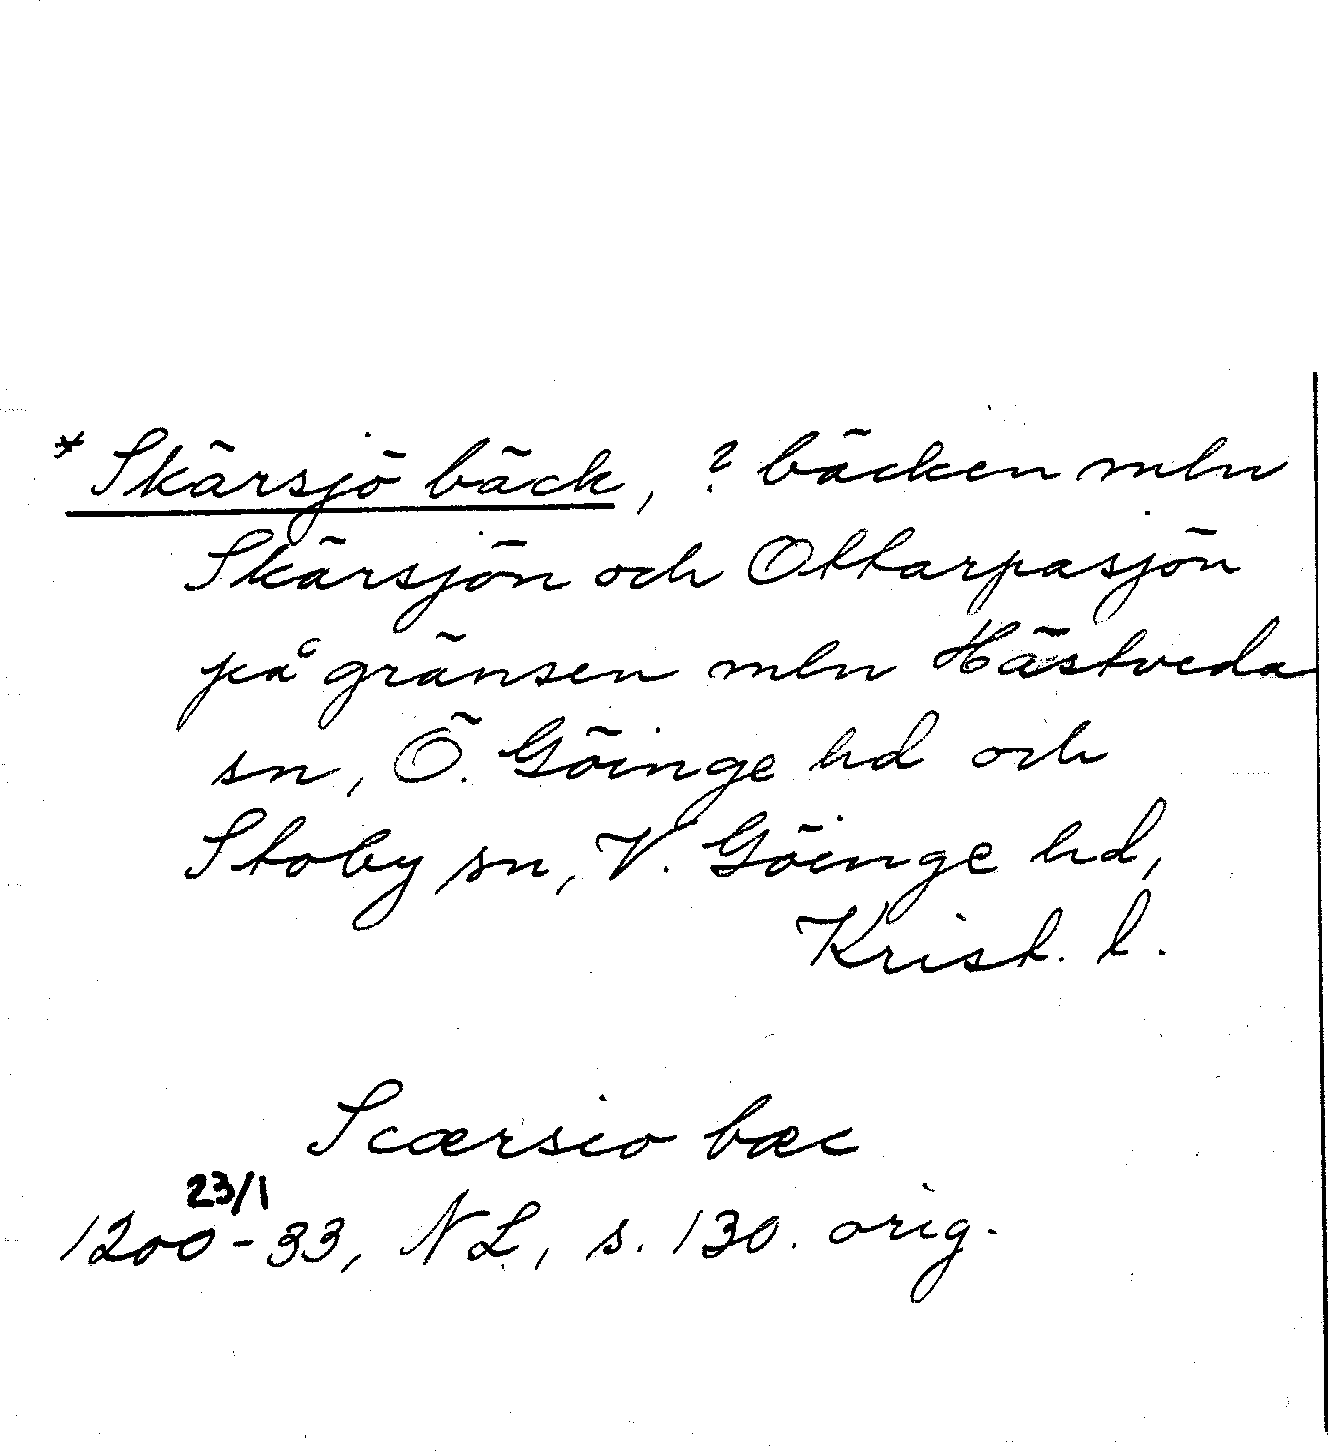 * Skärsjö bäck, ? bäcken mln
Skärsjön och Ottarpasjön
på gränsen mln Hästveda
sn, Ö. Göinge hd och
Stoby sn, V. Göinge hd,
Krist. l.
Scærsio bæc
23/1
1200-33, NL, s. 130. orig.